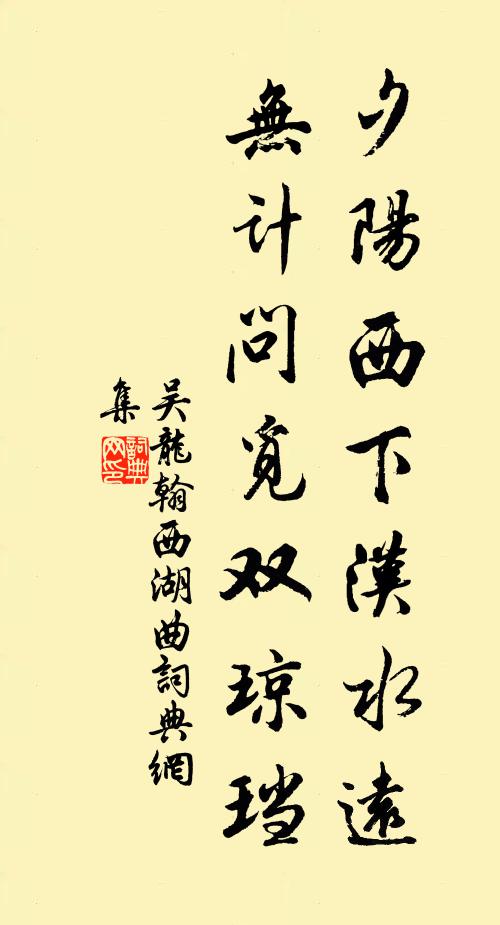 夕陽西下漢水遠
無計問覓双琼珰
吴龍翰西湖曲詞典網
集
詞典
网印